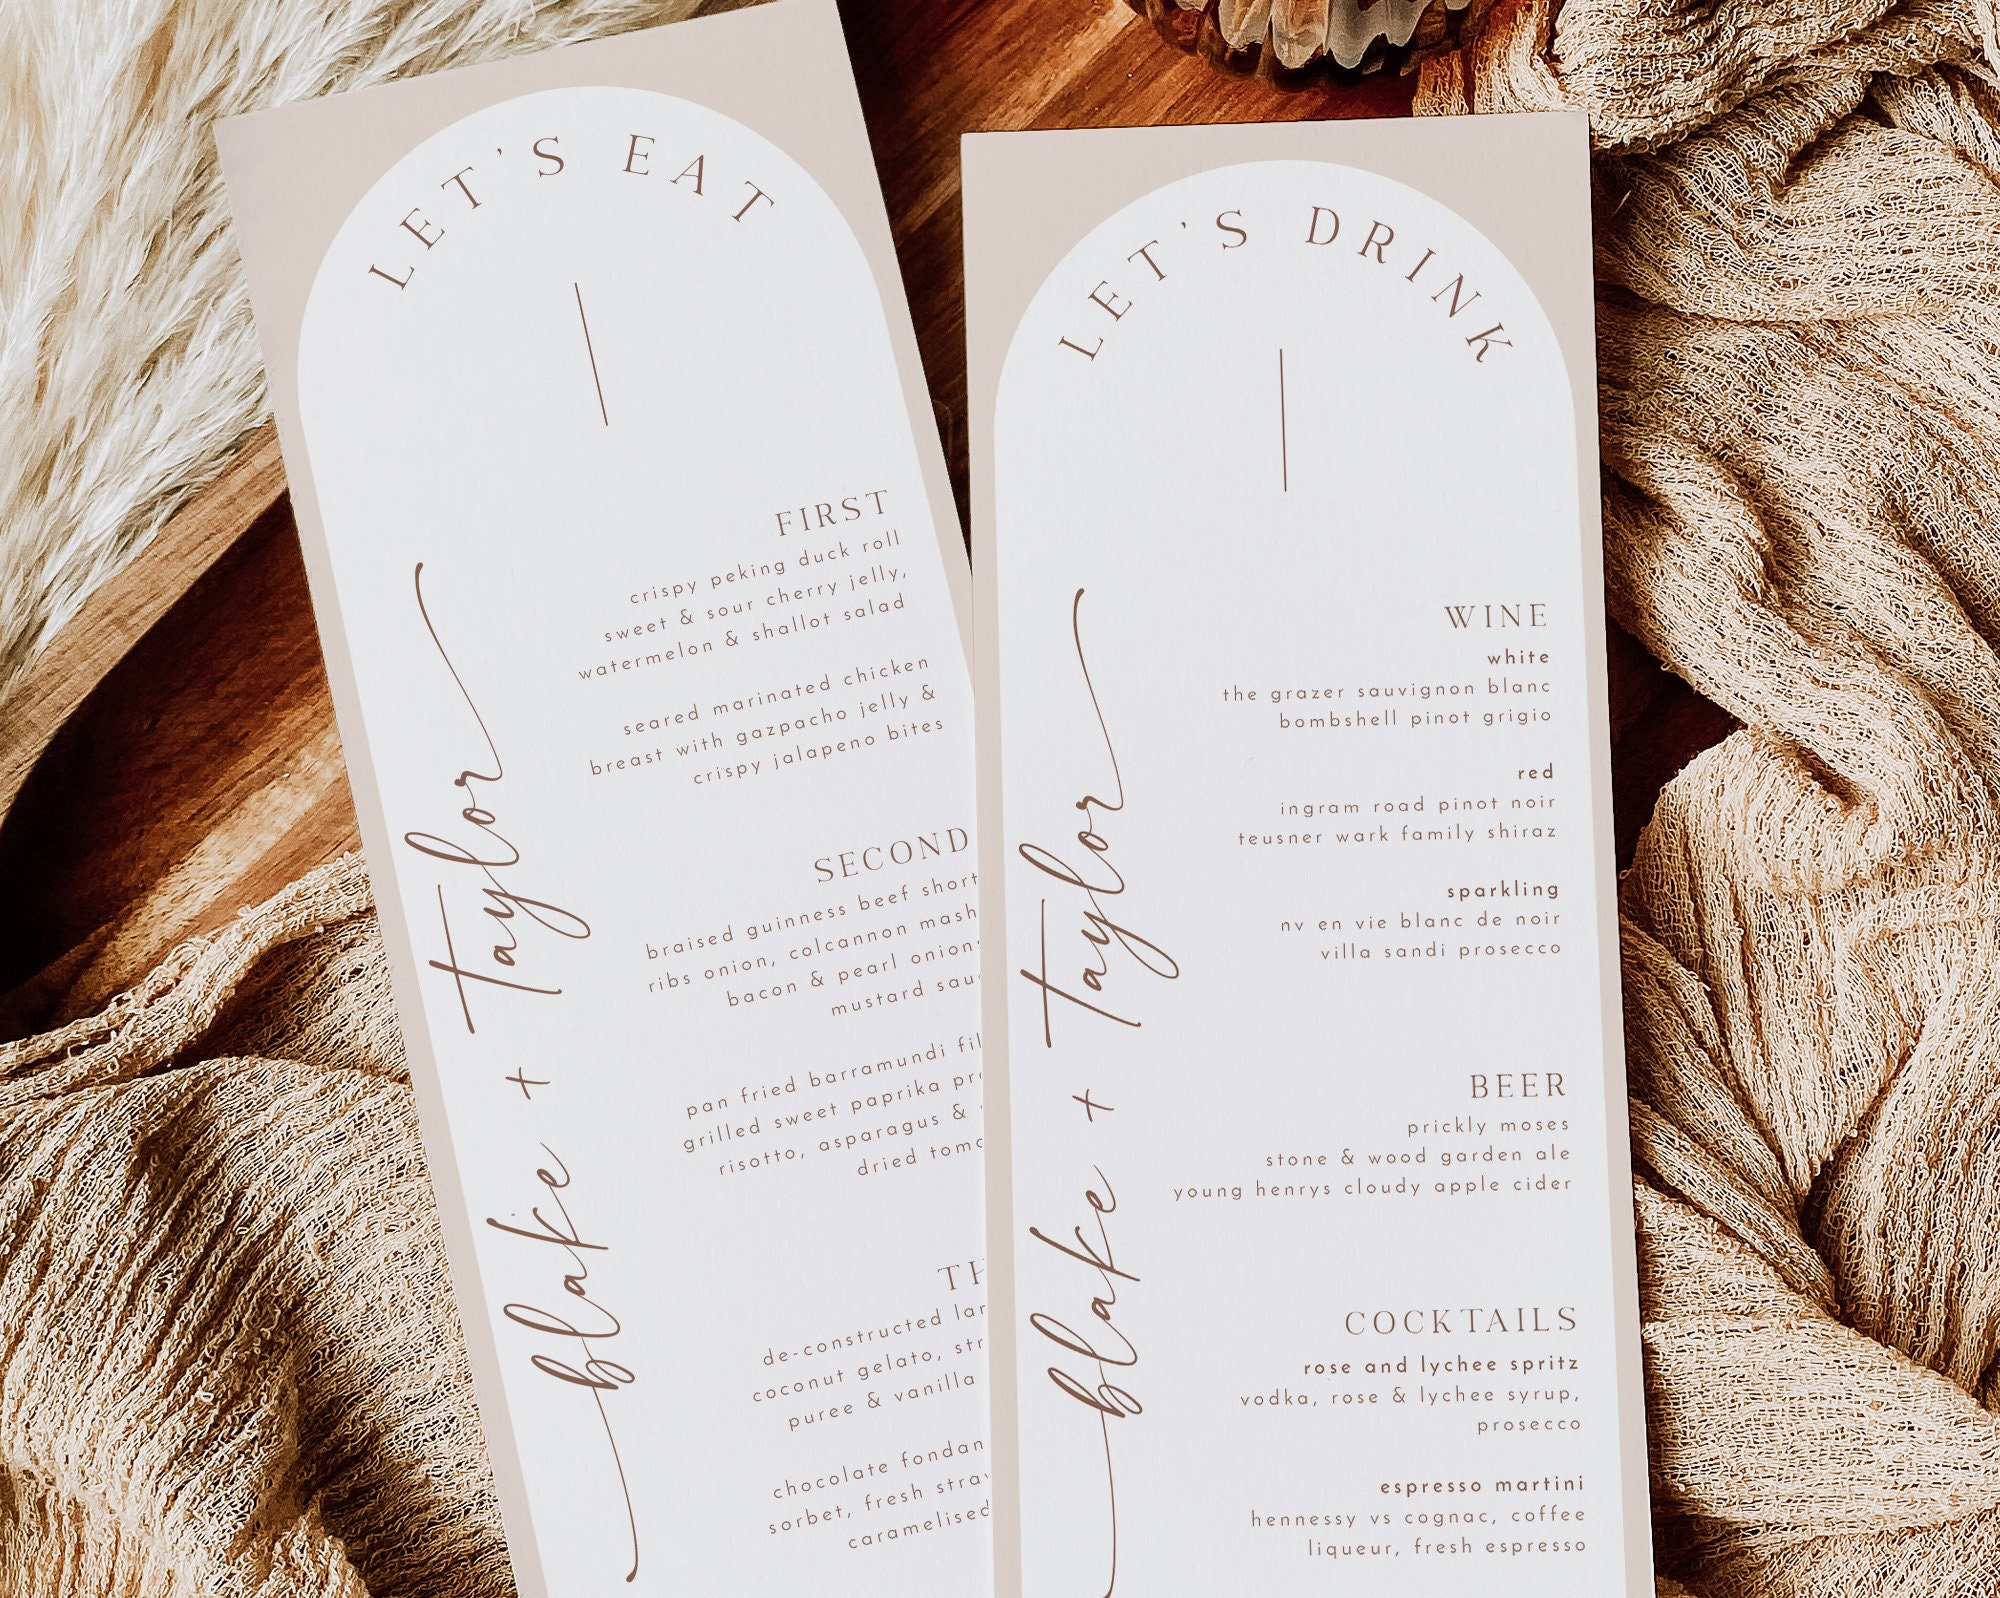 LET'S EAT
FIRST
crispy peking duck roll
sweet & sour cherry jelly,
watermelon & shallot salad
seared marinated chicken
breast with gazpacho jelly &
crispy jalapeno bites
SECOND
braised guinness beef short
ribs onion, colcannon mash
bacon & pearl onions
mustard
pan fried barramundi
grilled sweet paprika
risotto, asparagus &
dried
de-constructed
coconut gelato,
puree & vanilla
chocolate
sorbet, fresh
caramelised
blake + taylor
LET'S DRINK
WINE
white
the grazer sauvignon blanc
bombshell pinot grigio
red
ingram road pinot noir
teusner wark family shiraz
sparkling
nv en vie blanc de noir
villa sandi prosecco
BEER
prickly moses
stone & wood garden ale
young henrys cloudy apple cider
COCKTAILS
rose and lychee spritz
vodka, rose & lychee syrup,
prosecco
espresso martini
hennessy vs cognac, coffee
liqueur, fresh espresso
blake + taylor